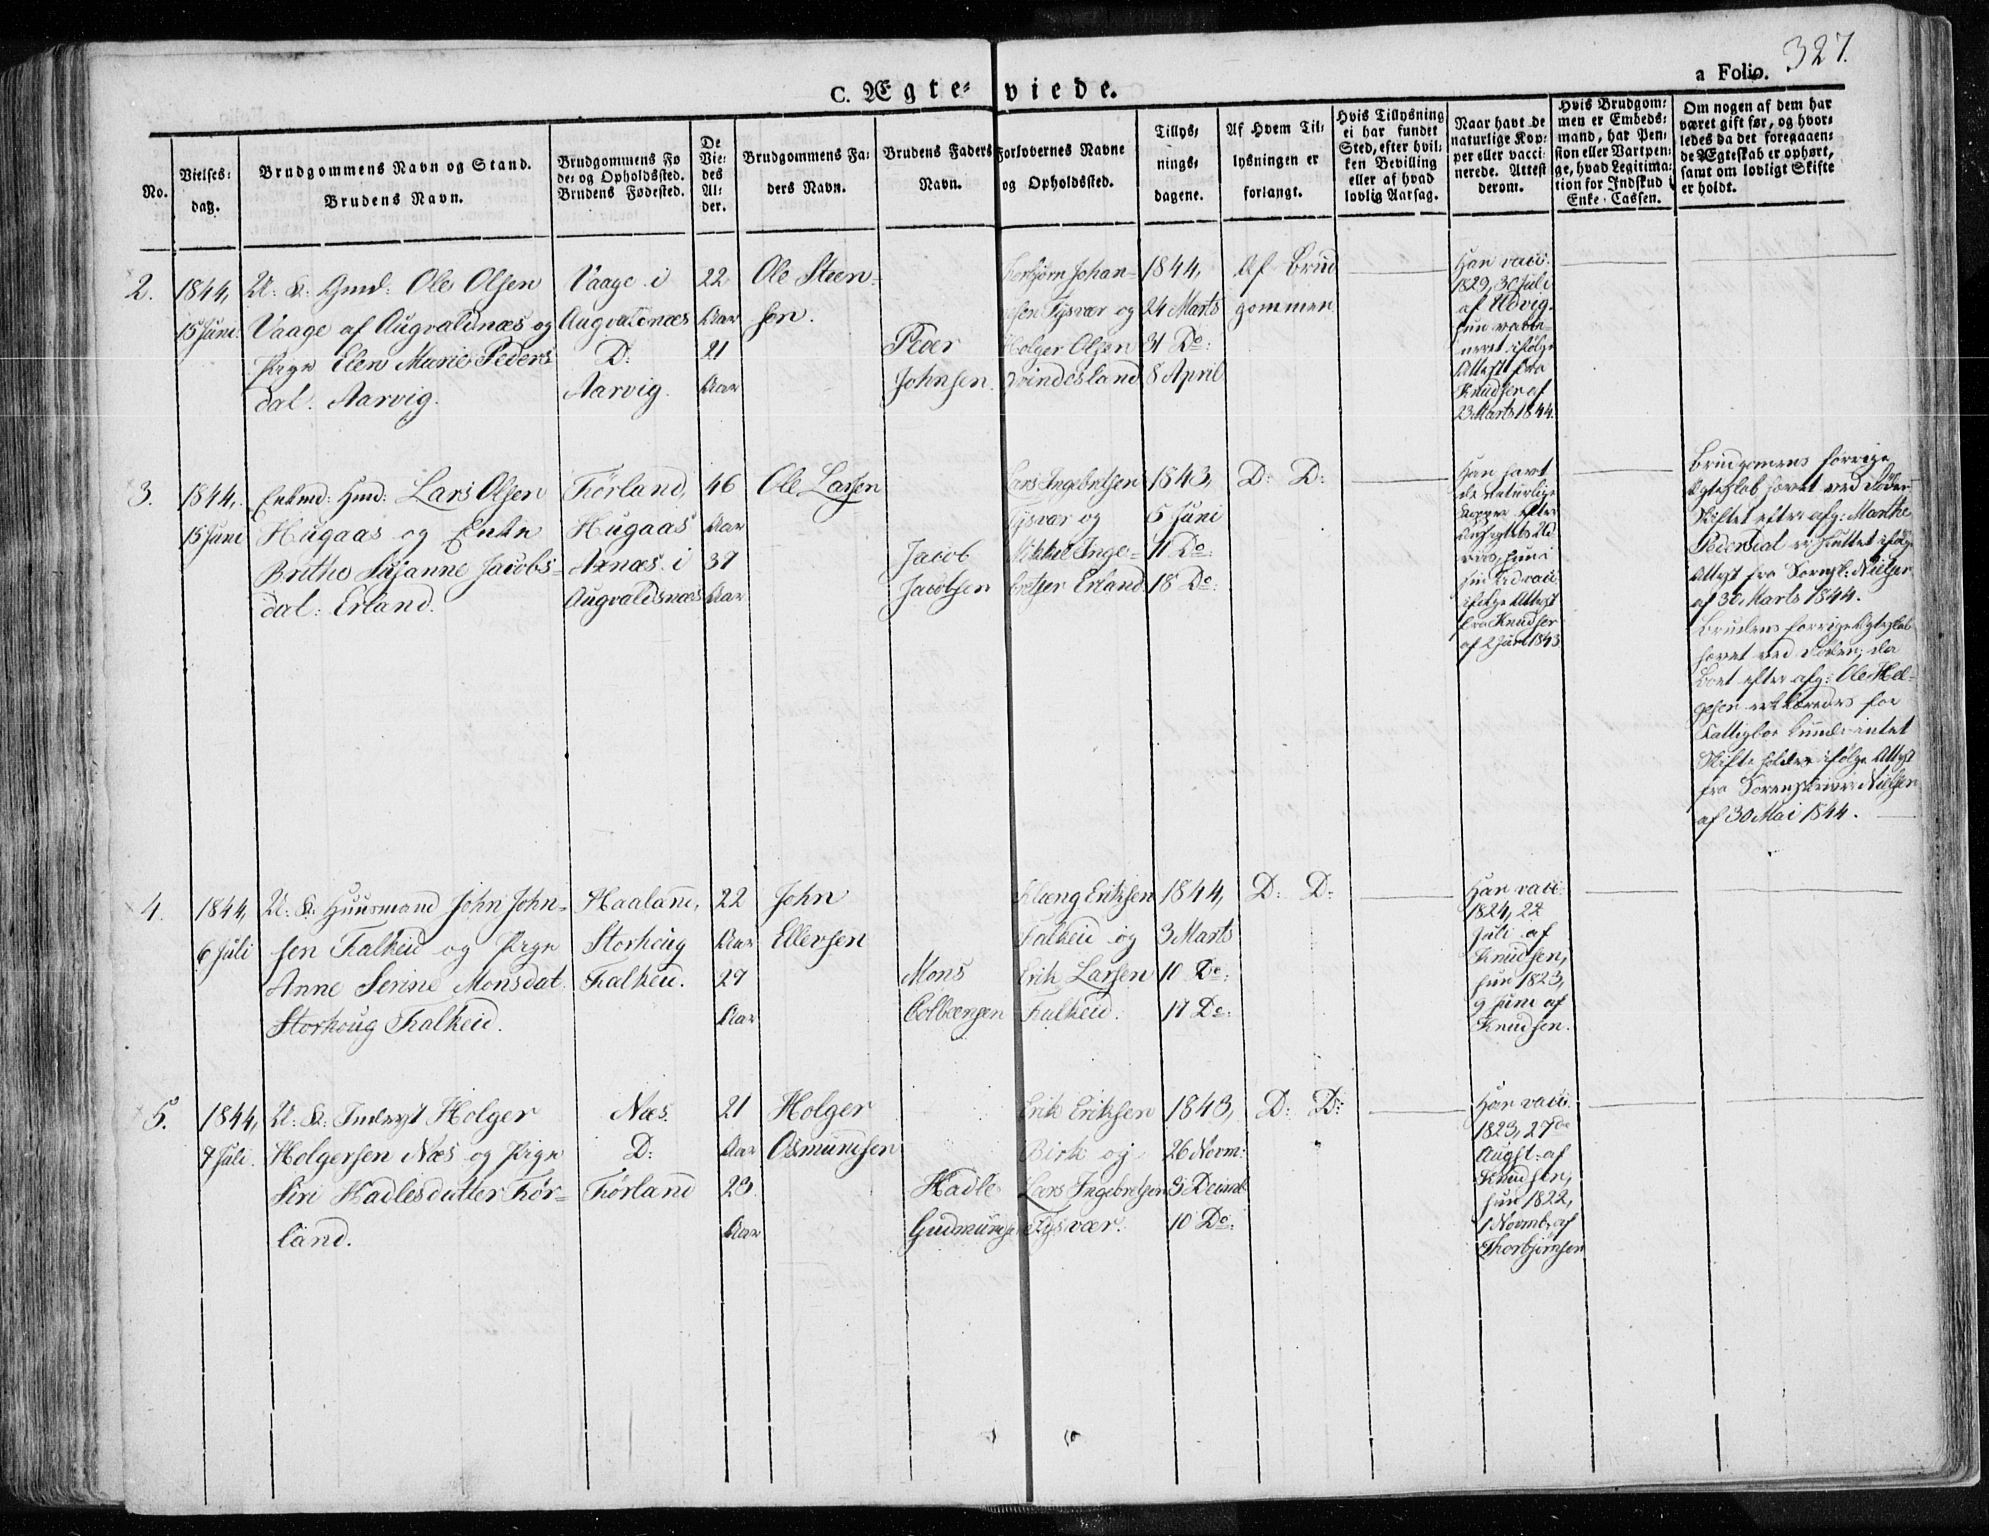 327.
a Folio.
C. Ægte- viede.
No.
Vielses-
datz.
Brudgommens Navn og Stand.
Brudens Navn.
Brudgommens Fø
de- og Opholdssted.
Brudens Fødested.
De
Vie-
des
Al-
der.
Brudgommens Fa-
ders Navn.
Brudens Faders
Navn.
Forlovernes Navne
og Opholdssted.
Tillys-
nings-
dagene.
Af Hvem Til-
lysningen er
forlangt.
Hvis Tillysning
ei har fundet
Sted, efter hvil-
ken Bevilling
eller af hvad
lovlig Aarsag.
Naar havt de
naturlige Kop-
per eller vacci-
nerede. Attest
derom.
Hvis Brudgom-
men er Embeds-
mand, har Pen-
sion eller Vartpen-
ge, hvad Legitima-
tion for Indskud i
Enke-Cassen.
Om nogen af dem har
været gift før, og hvor-
ledes da det foregaaen-
de Ægteskab er ophørt,
samt om lovligt Skifte
er holdt.
2.
1844,
15 Juni.
U. K. Gmd: Ole Olsen
Vaage af Augvaldnæs og
Pige Elen Marie Peders
dat. Aarvig.
Vaage i
Augvaldnæs
D:
Aarvig.
22
Aar
21
Aar
Ole Steen-
sen.
Peder
Johnsen.
Torbjørn Johan-
nesen Tysvær og
Holger Olsen
Svindesland
1844,
24 Marts
31 Do:
8 April
Af Brud
gommen
Han vacc:
1829, 30 Juli
af Udvig.
hun vacci-
neret ifølge
Attest fra
Knudsen af
23 Marts 1844.
3.
1844,
15 Juni
Enkmd: Gmd: Lars Olsen
Hugaas og Enken
Brithe Susanne Jacobs-
dat: Erland.
Førland,
Hugaas
Axnæs i
Augvaldsnæs
46
Aar
37
Aar
Ole Larsen
Jacob
Jacobsen
Lars Ingebretsen
Tysvær og
Mikkel Inge-
bretsen Erland
1843,
5 Juni
11 Do:
18 Do:
D: D:
Han havt
de naturlige
Kopper efter
hun
ifølge Attest
fra Knudsen
af 2 Juni 1843
Brudgomens forrige
Egteskab hævet ved Døden
Skiftet efter afg: Marthe
Pedersdat er sluttet ifølge
Attest fra Sorenskr: Nielsen
af 30 Marts 1844.
Brudens forrige Egteskab
hævet ved Døden, da
Boet efter afg: Ole Hel-
gesen erklæredes for
Fattigbo kunde intet
Skifte holdes ifølge Attest
fra Sorenskriver Nielsen
af 30 Mai 1844.
4.
1844,
6 Juli
U: K: Huusmand John John-
sen Falkeid og Pige
Anne Serine Monsdat.
Storhoug Falkeid.
Haaland,
Storhoug
Falkeid.
22
Aar
27
Aar
John
Ellersen
Mons
Colbeensen
Klæng Eriksen
Falkeid og
Erik Larsen
Falkeid.
1844,
3 Marts
10 Do:
17 Do:
D: D:
Han vacc:
1824, 22
Juli af
Knudsen,
hun 1823,
9 Juni af
Knudsen.
5.
1844,
7 Juli.
U: K: Inderst Holger
Holgersen Næs og Pige
Siri Hadlesdatter Før-
land.
Næs.
D:
Førland
21
Aar
23
Aar
Holger
Osmundsen
Hadle
Gudmundsen
Erik Eriksen
Birk og
Lars Ingebretsen
Tysvær.
1843,
26 Novm:
3 Decmb
10 Do:
D: D:
Han vacc:
1823, 27de
Augst: af
Knudsen,
hun 1822,
1 Novmb. af
Thorbjørnsen